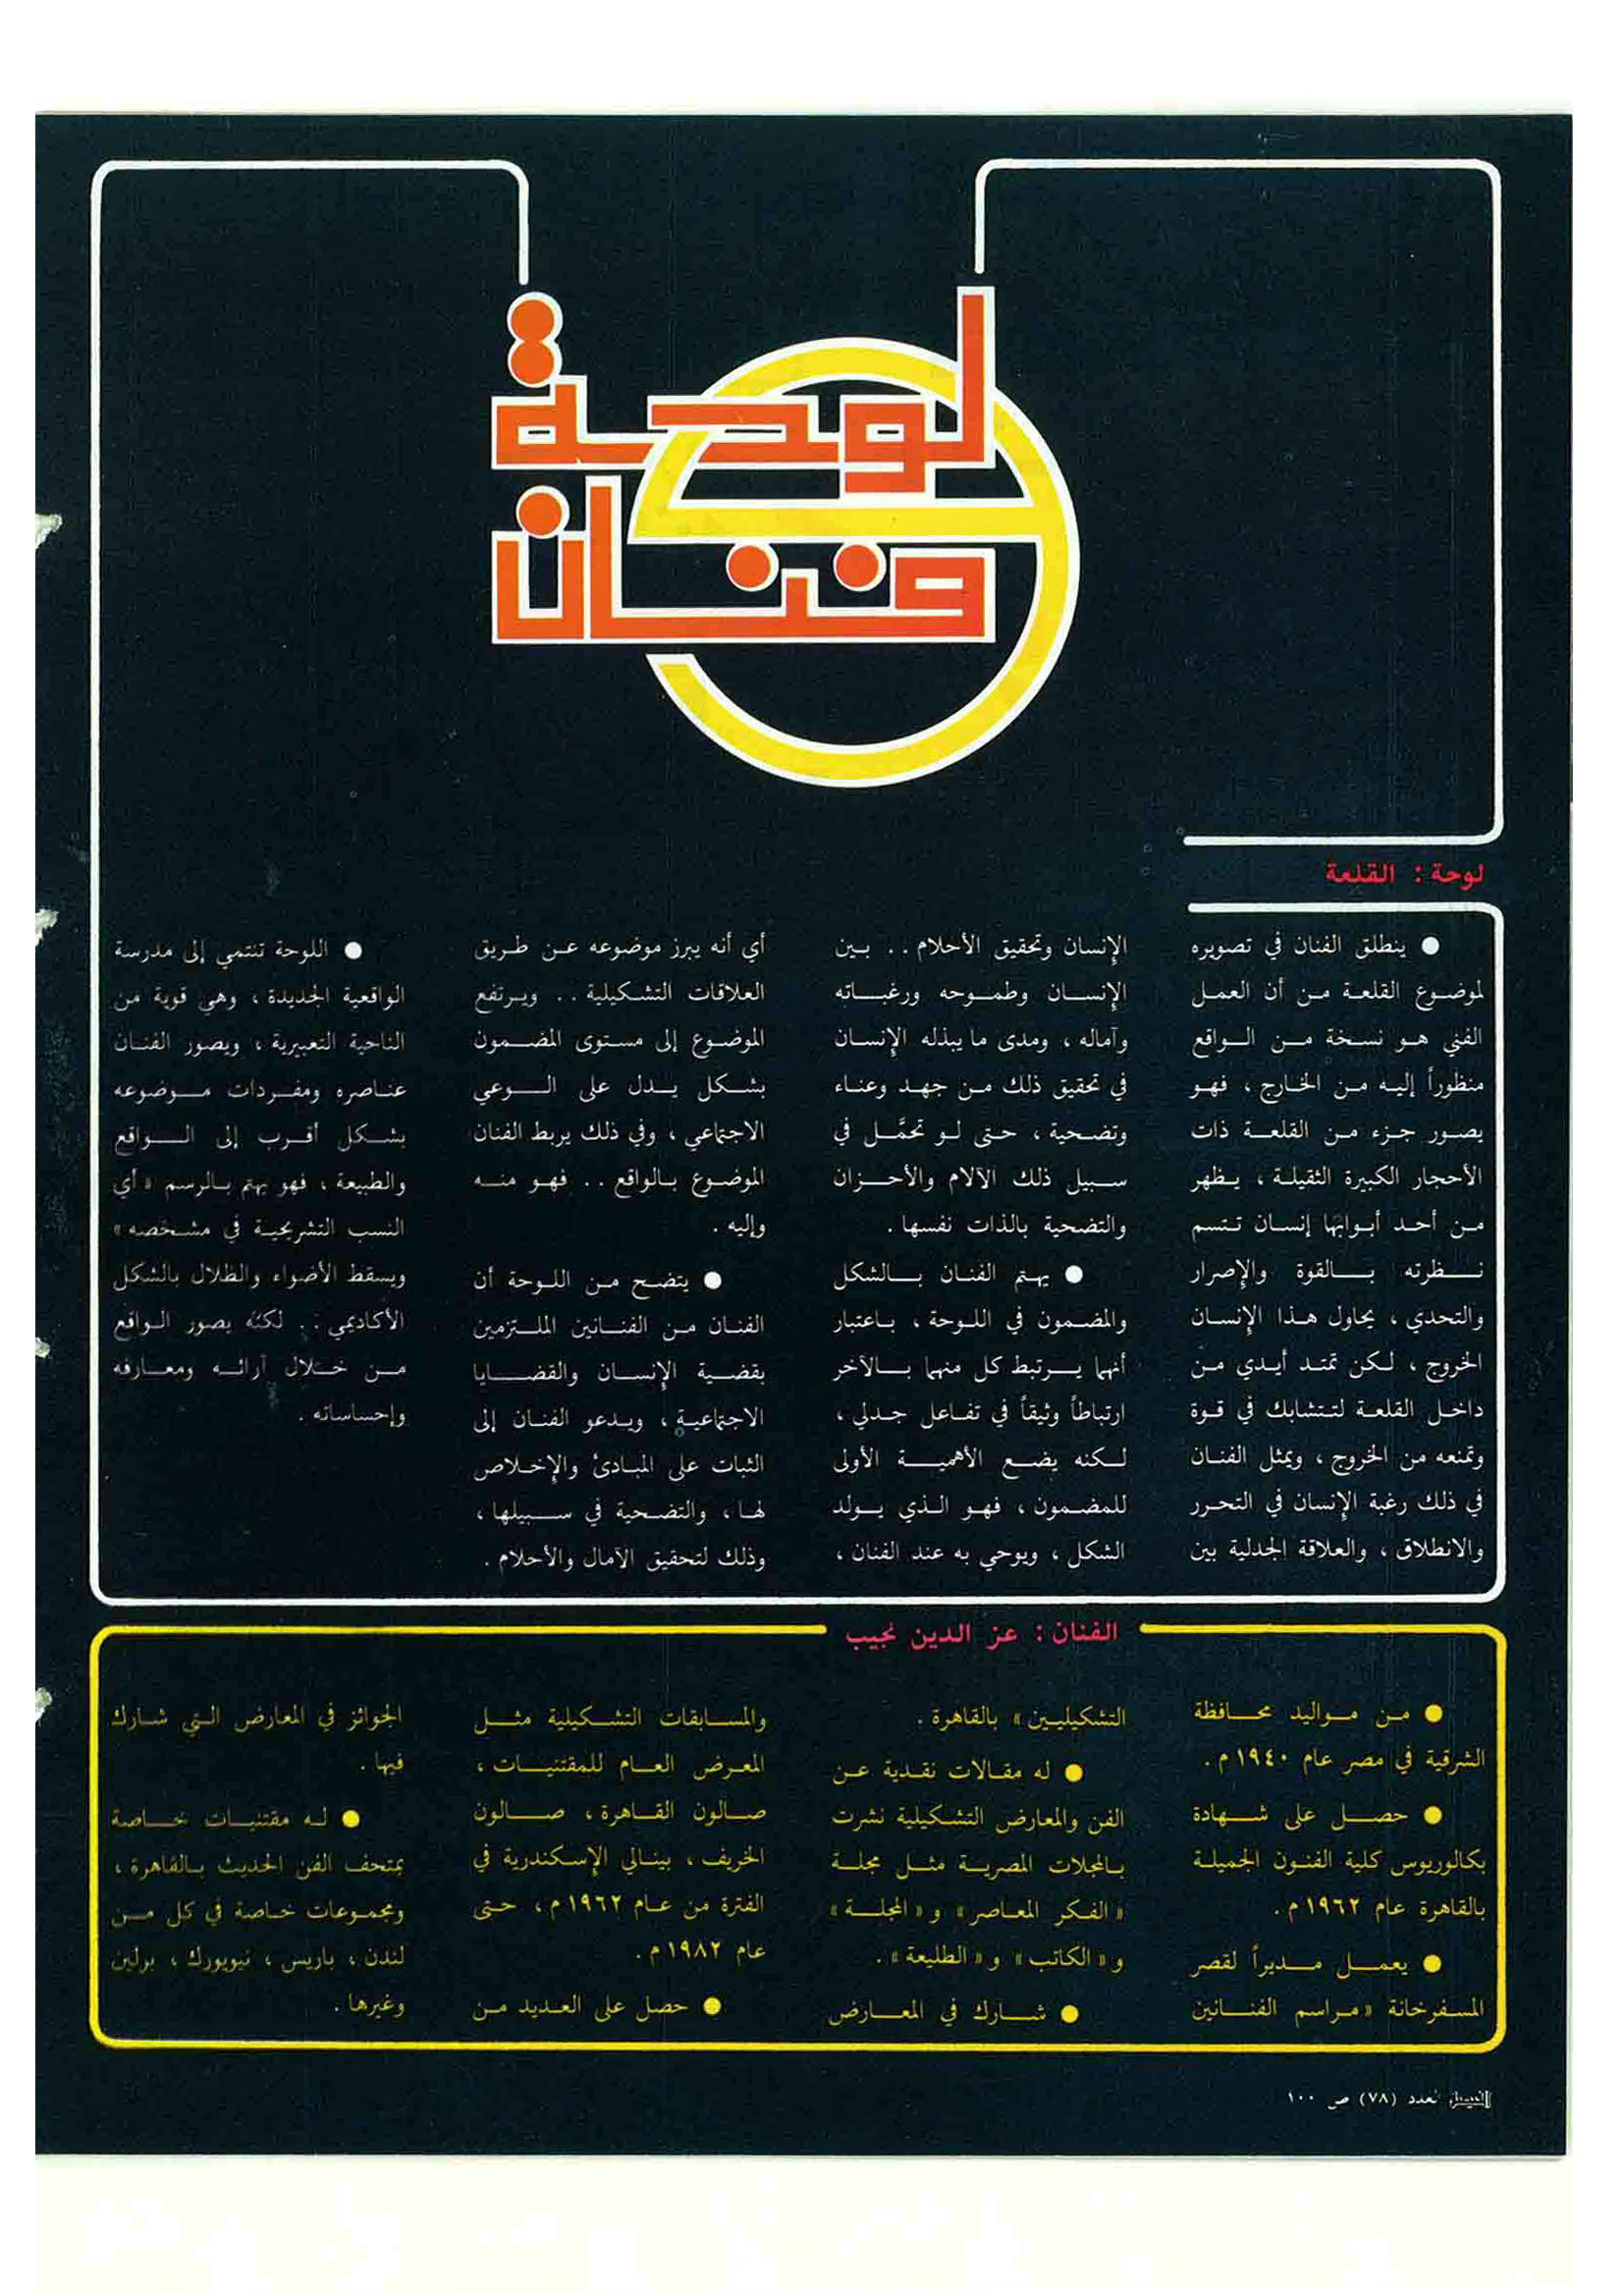 لوحة
فنان
لوحة : القلعة
● ينطلق الفنان في تصويره
لموضوع القلعة من أن العمل
الفني هو نسخة من الواقع
منظوراً إليه من الخارج ، فهو
يصور جزء من القلعة ذات
الأحجار الكبيرة الثقيلة ، يظهر
من أحد أبوابها إنسان تتسم
نظرته بالقوة والإصرار
والتحدي ، يحاول هذا الإنسان
الخروج ، لكن تمتد أيدي من
داخل القلعة لتتشابك في قوة
وتمنعه من الخروج ، ويمثل الفنان
في ذلك رغبة الإنسان في التحرر
والانطلاق ، والعلاقة الجدلية بين
الإنسان وتحقيق الأحلام . . بين
الإنسان وطموحه ورغباته
وآماله ، ومدى ما يبذله الإنسان
في تحقيق ذلك من جهد وعناء
وتضحية ، حتى لو تحمَّل في
سبيل ذلك الآلام والأحزان
والتضحية بالذات نفسها .
● يهتم الفنان بالشكل
والمضمون في اللوحة ، باعتبار
أنهما يرتبط كل منهما بالآخر
ارتباطاً وثيقاً في تفاعل جدلي ،
لكنه يضع الأهمية الأولى
للمضمون ، فهو الذي يولد
الشكل ، ويوحي به عند الفنان ،
أي أنه يبرز موضوعه عن طريق
العلاقات التشكيلية . . ويرتفع
الموضوع إلى مستوى المضمون
بشكل يدل على الوعي
الاجتماعي ، وفي ذلك يربط الفنان
الموضوع بالواقع . . فهو منه
وإليه .
● يتضح من اللوحة أن
الفنان من الفنانين الملتزمين
بقضية الإنسان والقضايا
الاجتماعية ، ويدعو الفنان إلى
الثبات على المبادئ والإخلاص
لها ، والتضحية في سبيلها ،
وذلك لتحقيق الآمال والأحلام .
● اللوحة تنتمي إلى مدرسة
الواقعية الجديدة ، وهي قوية من
الناحية التعبيرية ، ويصور الفنان
عناصره ومفردات موضوعه
بشكل أقرب إلى الواقع
والطبيعة ، فهو يهتم بالرسم « أي
النسب التشريحية في مشخصه »
ويسقط الأضواء والظلال بالشكل
الأكاديمي . . لكنه يصور الواقع
من خلال آرائه ومعارفه
وإحساساته .
الفنان : عز الدين نجيب
● من مواليد محافظة
الشرقية في مصر عام ١٩٤٠ م .
● حصل على شهادة
بكالوريوس كلية الفنون الجميلة
بالقاهرة عام ١٩٦٢ م .
● يعمل مديراً لقصر
المسفرخانة « مراسم الفنانين
التشكيليين » بالقاهرة .
● له مقالات نقدية عن
الفن والمعارض التشكيلية نشرت
بالمجلات المصرية مثل مجلة
« الفكر المعاصر » و « المجلة »
و « الكاتب » و « الطليعة » .
● شارك في المعارض
والمسابقات التشكيلية مثل
المعرض العام للمقتنيات ،
صالون القاهرة ، صالون
الخريف ، بينالي الإسكندرية في
الفترة من عام ١٩٦٢ م ، حتى
عام ١٩٨٢ م .
● حصل على العديد من
الجوائز في المعارض التي شارك
فيها .
● له مقتنيات خاصة
بمتحف الفن الحديث بالقاهرة ،
ومجموعات خاصة في كل من
لندن ، باريس ، نيويورك ، برلين
وغيرها .
الفيصل العدد (٧٨) ص ١٠٠